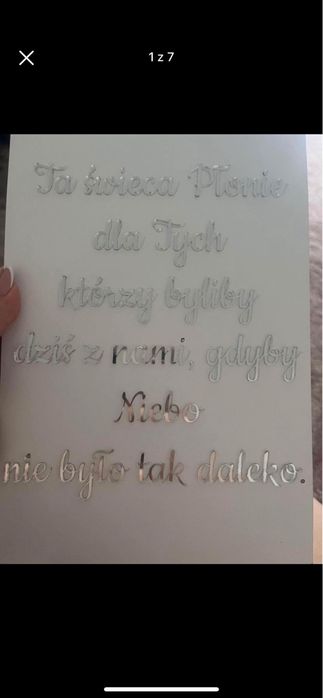 1 z 7
Ta świeca Płonie
dla Tych
którzy byliby
dziś z nami, gdyby
Niebo
nie było tak daleko.